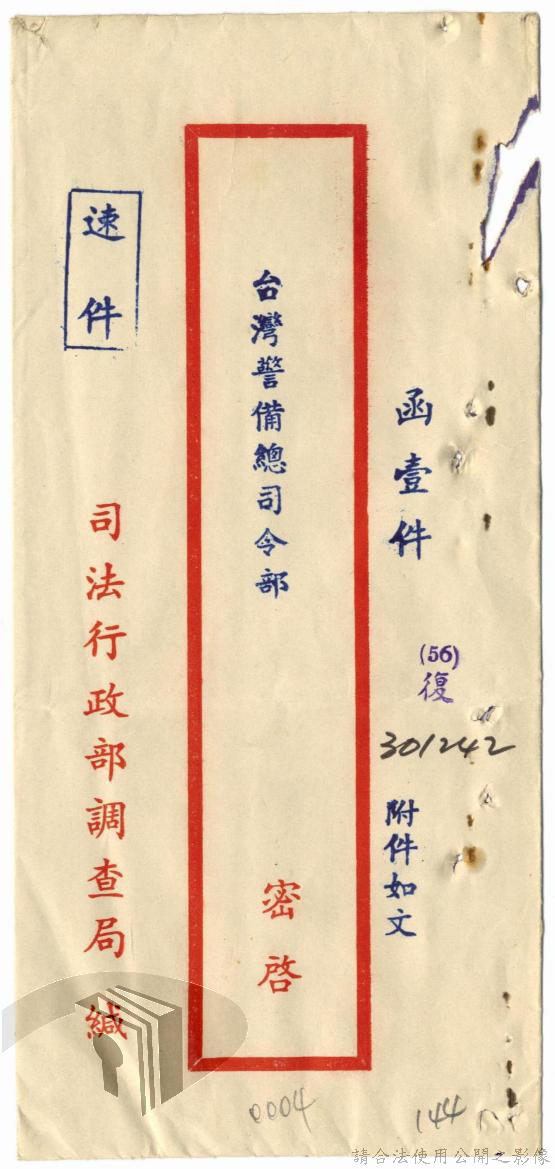 函壹件
(56)
復
301242
附件如文
台灣警備總司令部
密啓
速件
司法行政部調查局緘
0004
144
請合法使用公開之影像